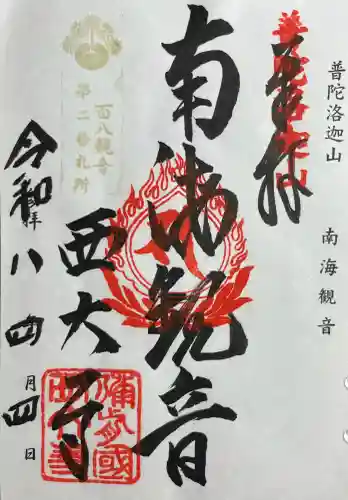 普陀洛迦山
南海観音
奉拝
南海観音
百八観音
第二番札所
西大寺
備前國
令和八年四月四日